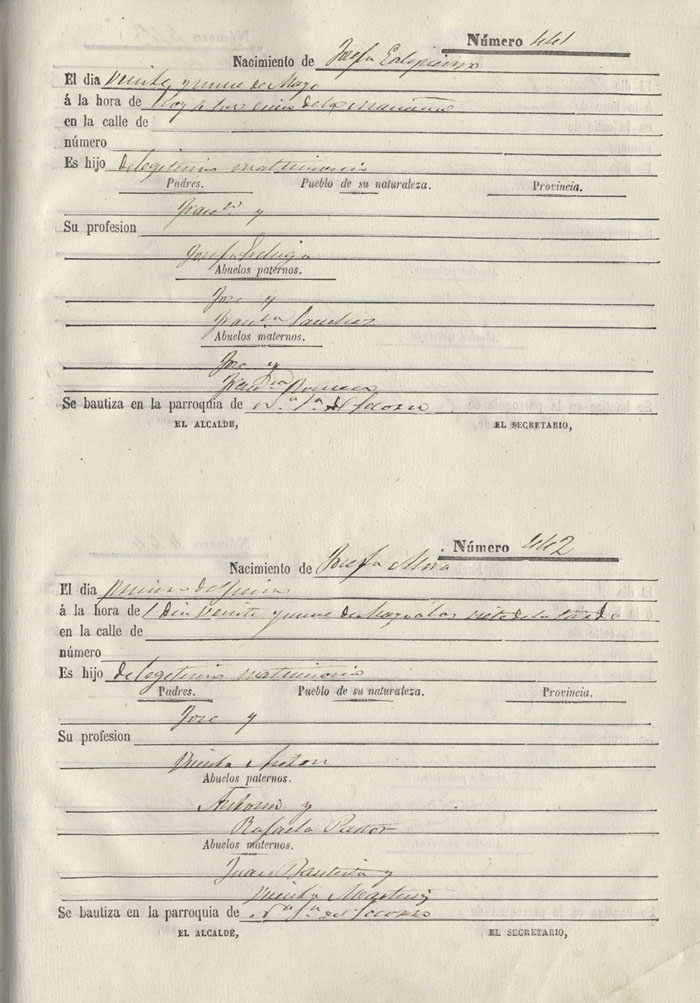 Número 441
Nacimiento de Josefa
El dia veinte y nueve de Mayo
á la hora de hoy a las cinco de la mañana
en la calle de
número
Es hijo de legitimo matrimonio
Padres. Pueblo de su naturaleza. Provincia.
Fran.co y
Su profesion
Josefa
Abuelos paternos.
Jose y
Fran.ca Sanchez
Abuelos maternos.
Jose y
Fran.ca
Se bautiza en la parroquia de N.a S.a del Socorro
EL ALCALDE, EL SECRETARIO,
Número 442
Nacimiento de Josefa Mira
El dia primero de Junio
á la hora de l Dia veinte y nueve de Mayo a las siete de la tarde
en la calle de
número
Es hijo de legitimo matrimonio
Padres. Pueblo de su naturaleza. Provincia.
Jose y
Su profesion
Vicenta Anton
Abuelos paternos.
Antonio y
Rafaela Pastor
Abuelos maternos.
Juan Bautista y
Vicenta Martinez
Se bautiza en la parroquia de N.a S.a del Socorro
EL ALCALDE, EL SECRETARIO,